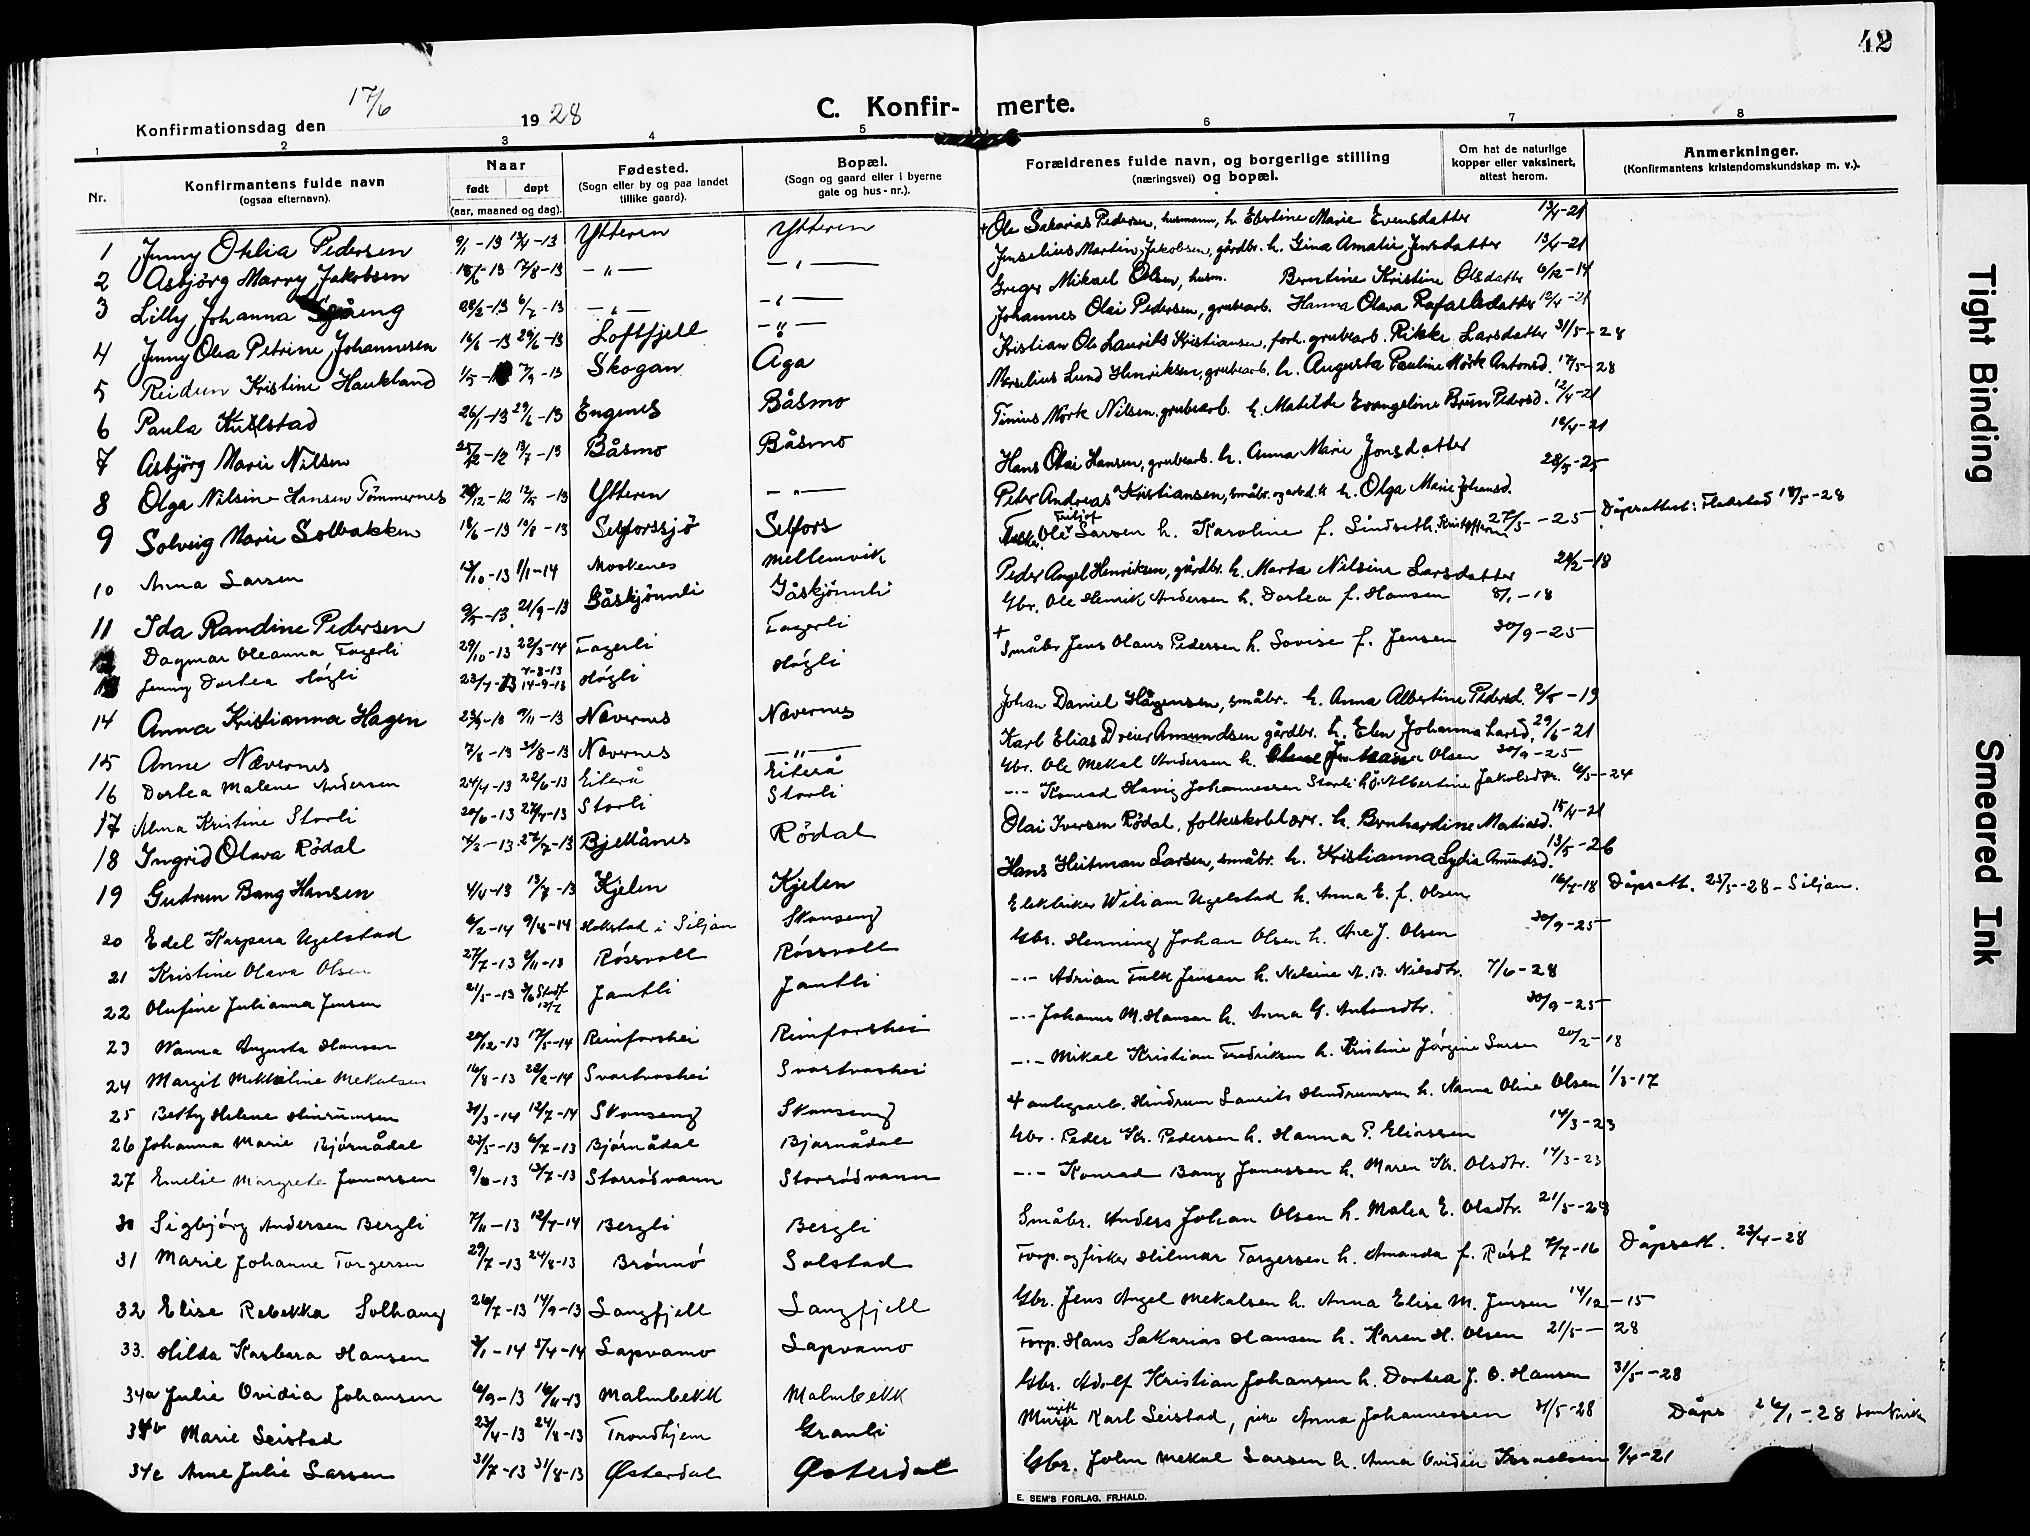 42
C. Konfir- merte.
Konfirmationsdag den 17/6 1928
1 2 3 4 5 6 7 8
Nr. Konfirmantens fulde navn (ogsaa efternavn). Naar født døpt (aar, maaned og dag). Fødested. (Sogn eller by og paa landet tillike gaard). Bopæl. (Sogn og gaard eller i byerne gate og hus-nr.). Forældrenes fulde navn, og borgerlige stilling (næringsvei) og bopæl. Om hat de naturlige kopper eller vaksinert, attest herom. Anmerkninger. (Konfirmantens kristendomskundskap m. v.).
1 Jenny Othlia Pedersen 9/1-13 13/4-13 Ytteren Ytteren + Ole Sakarias Pedersen, husmann, h. Ebertine Marie Evensdatter 13/4-21
2 Asbjörg Marry Jakobsen 18/6-13 17/8-13 -"- -"- Jenselius Martin Jakobsen, gårdbr. h. Gina Amalie Jensdatter 13/4-21
3 Lilly Johanna 28/2-13 6/7-13 -"- -"- Greger Mikael Olsen, husm. Berntine Kristine Olsdatter 6/12-14
4 Jenny Olea Petrine Johannesen 16/6-13 29/6-13 Loftfjell -"- Johannes Olai Pedersen, grubearb. Hanna Olava Rafaelsdatter 12/4-21
5 Reidun Kristine Haukland 1/5- 7/9-13 Skogan Aga Kristian Ole Laurits Kristiansen, forh. grubearb. Rikke Larsdatter 31/5-28
6 Paula 26/1-13 29/6-13 Engenes Båsmo Merselius Lund Henriksen, grubearb. h. Augusta Pauline Mörk Antonsd. 17/5-28
7 Asbjörg Marie Nilsen 25/12-12 13/7-13 Båsmo Båsmo Tinius Mörk Nilsen, grubearb. h. Matilde Evangeline Brun Pedersd. 12/4-21
8 Olga Nilsine Hansen Tömmernes 29/12-12 12/5-13 Ytteren -"- Hans Olai Hansen, grubearb. h. Anna Marie Jonsdatter 16/4-21
9 Solveig Marie Solbakken 18/6-13 10/8-13 Selforssjö Selfors Peter Andreas Kristiansen, småbr. h. Olga Marie Johansd. 28/5-25
10 Anna Larsen 13/10-13 1/1-14 Moskenes Mellemvik Ole Larsen h. Karoline f. Sindseth. 27/5-25 Dåpsattest: Flakstad 18/5-28
11 Ida Randine Pedersen 9/5-13 21/9-13 Gåskjönnli Gåskjönnli Peder Angel Henriksen, gårdbr. h. Marta Nilsine Larsdatter 28/2-18
Dagmar Oleanna Fagerli 29/10-13 22/3-14 Fagerli Fagerli Gbr. Ole Henrik Andersen h. Dortea f. Hansen 8/1-18
Jenny Dortea Högli 23/7-13 7-8-13 14-9-13 Högli Högli + Småbr. Jens Olaus Pedersen h. Lovise f. Jensen 30/9-25
14 Anna Kristianna Hagen 23/9-13 9/11-13 Nævernes Nævernes Johan Daniel Hågensen, småbr. h. Anna Albertine Pedersd. 2/5-19
15 Anne Nævernes 7/8-13 31/8-13 Nævernes -"- Karl Elias Dreier Amundsen gårdbr. h. Elen Johanna Larsd. 29/6-21
16 Dortea Malene Andersen 24/4-13 22/6-13 Eiterå Eiterå Gbr. Ole Mekal Andersen h. Olsen 30/9-25
17 Alma Kristine Storli 20/6-13 27/7-13 Storli Storli -"- Konrad Havig Johannessen Storli h. J. Albertine Jakobsdtr. 6/5-24
18 Ingrid Olava Rödal 7/3-13 27/7-13 Bjellånes Rödal Olai Iversen Rödal, folkeskolelærer. h. Bernhardine Matiasd. 15/4-21
19 Gudrun Bang Hansen 4/4-13 13/7-13 Kjelen Kjelen Hans Heitman Larsen, småbr. h. Kristianna Lydia Amundsd. 13/5-26
20 Edel Kaspara Ugelstad 6/2-14 9/8-14 Holstad i Siljan Skonseng Elektriker Wiliam Ugelstad h. Anna E. f. Olsen 16/7-18 Dåpsatt. 25/5-28 - Siljan.
21 Kristine Olava Olsen 27/7-13 2/11-13 Røssvoll Røssvoll Gbr. Henning Johan Olsen h. J. Olsen 30/9-25
22 Olufine Julianna Jensen 21/5-13 Jamtli Jamtli -"- Adrian Falk Jensen h. Nelsine A. B. Nilsdtr. 7/6-28
23 Nanna Augusta Hansen 20/12-13 17/5-14 Reinforshei Reinforshei -"- Johannes M. Hansen h. Anna G. Antonsdtr. 30/9-25
24 Margit Mekkeline Mekalsen 16/8-13 22/2-14 Svartvashei Svartvashei -"- Mikal Kristian Fredriksen h. Kristine Jørgine Larsen 20/2-18
25 Betty Helene Hinrumsen 31/3-14 12/7-14 Skonseng Skonseng + anlegsarb. Hindrum Laurits Hindrumsen h. Nanna Oline Olsen 1/3-17
26 Johanna Marie Bjørnådal 23/5-13 6/7-13 Bjørnådal Bjørnådal Gbr. Peder Kr. Pedersen h. Hanna P. Eliassen 14/3-23
27 Emelie Margrete Jonassen 9/6-13 13/7-13 Storrødvann Storrødvann -"- Konrad Bang Jonassen h. Maren Kr. Olsdtr. 14/3-23
30 Sigbjørg Andersen Bergli 7/11-13 12/7-14 Bergli Bergli Småbr. Anders Johan Olsen h. Malea E. Olsdtr. 21/5-28
31 Marie Johanne Torgersen 29/7-13 24/8-13 Brønnø Solstad Forp. og fisker Hilmar Torgersen h. Amanda f. 7/7-16 Dåpsatt. 23/4-28
32 Elise Rebekka Solhaug 26/7-13 14/9-13 Langfjell Langfjell Gbr. Jens Angel Mekalsen h. Anna Elise M. Jensen 14/12-15
33. Hilda Karbara Hansen 3/1-14 5/4-14 Lapvamo Lapvamo Forp. Hans Sakarias Hansen h. Karen H. Olsen 21/5-28
34a Julie Ovidia Johansen 6/9-13 16/11-13 Malmbekk Malmbekk Gbr. Adolf Kristian Johansen h. Dortea J. O. Hansen 31/5-28
34b Marie Seistad 23/4-13 24/8-13 Trondhjem Granli Murer Karl Seistad, pike Anna Johannessen 31/5-28 Dåps 26/1-28
34c Anne Julie Larsen 31/7-13 31/8-13 Østerdal Østerdal Gbr. John Mekal Larsen h. Anna Ovidia Israelsen 9/4-21
E. SEM'S FORLAG, FR.HALD.
Tight Binding
Smeared Ink